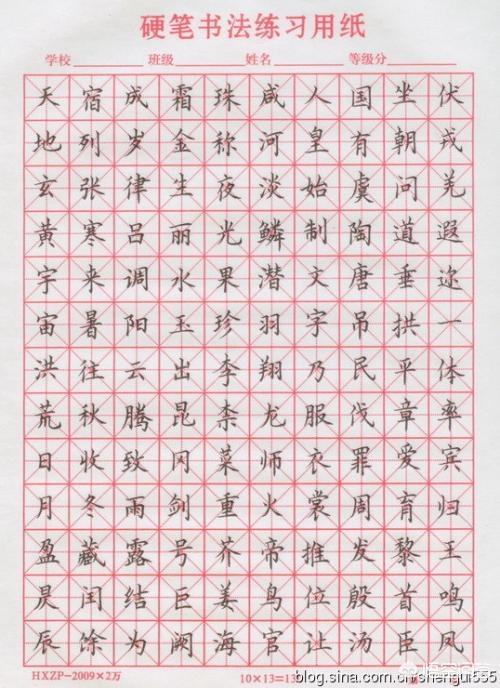 硬笔书法练习用纸
学校 班级 姓名 等级分
天地玄黄宇宙洪荒日月盈昃辰
宿列张寒来暑往秋收冬藏闰馀
成岁律吕调阳云腾致雨露结为
霜金生丽水玉出昆冈剑号巨阙
珠称夜光果珍李柰菜重芥姜海
咸河淡鳞潜羽翔龙师火帝鸟官
人皇始制文字乃服衣裳推位让
国有虞陶唐吊民伐罪周发殷汤
坐朝问道垂拱平章爱育黎首臣
伏戎羌遐迩一体率宾归王鸣凤
HXZP-2009×2万 10×13=13
blog.sina.com.cn/shengui555